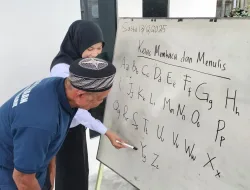 Kelas Membaca dan Menulis
Aa Bb Cc Dd Ee Ff Gg Hh
Jj Kk Ll Mm Nn Oo Pp
Qq Rr Ss Tt Uu Vv Ww Xx
Yy Zz